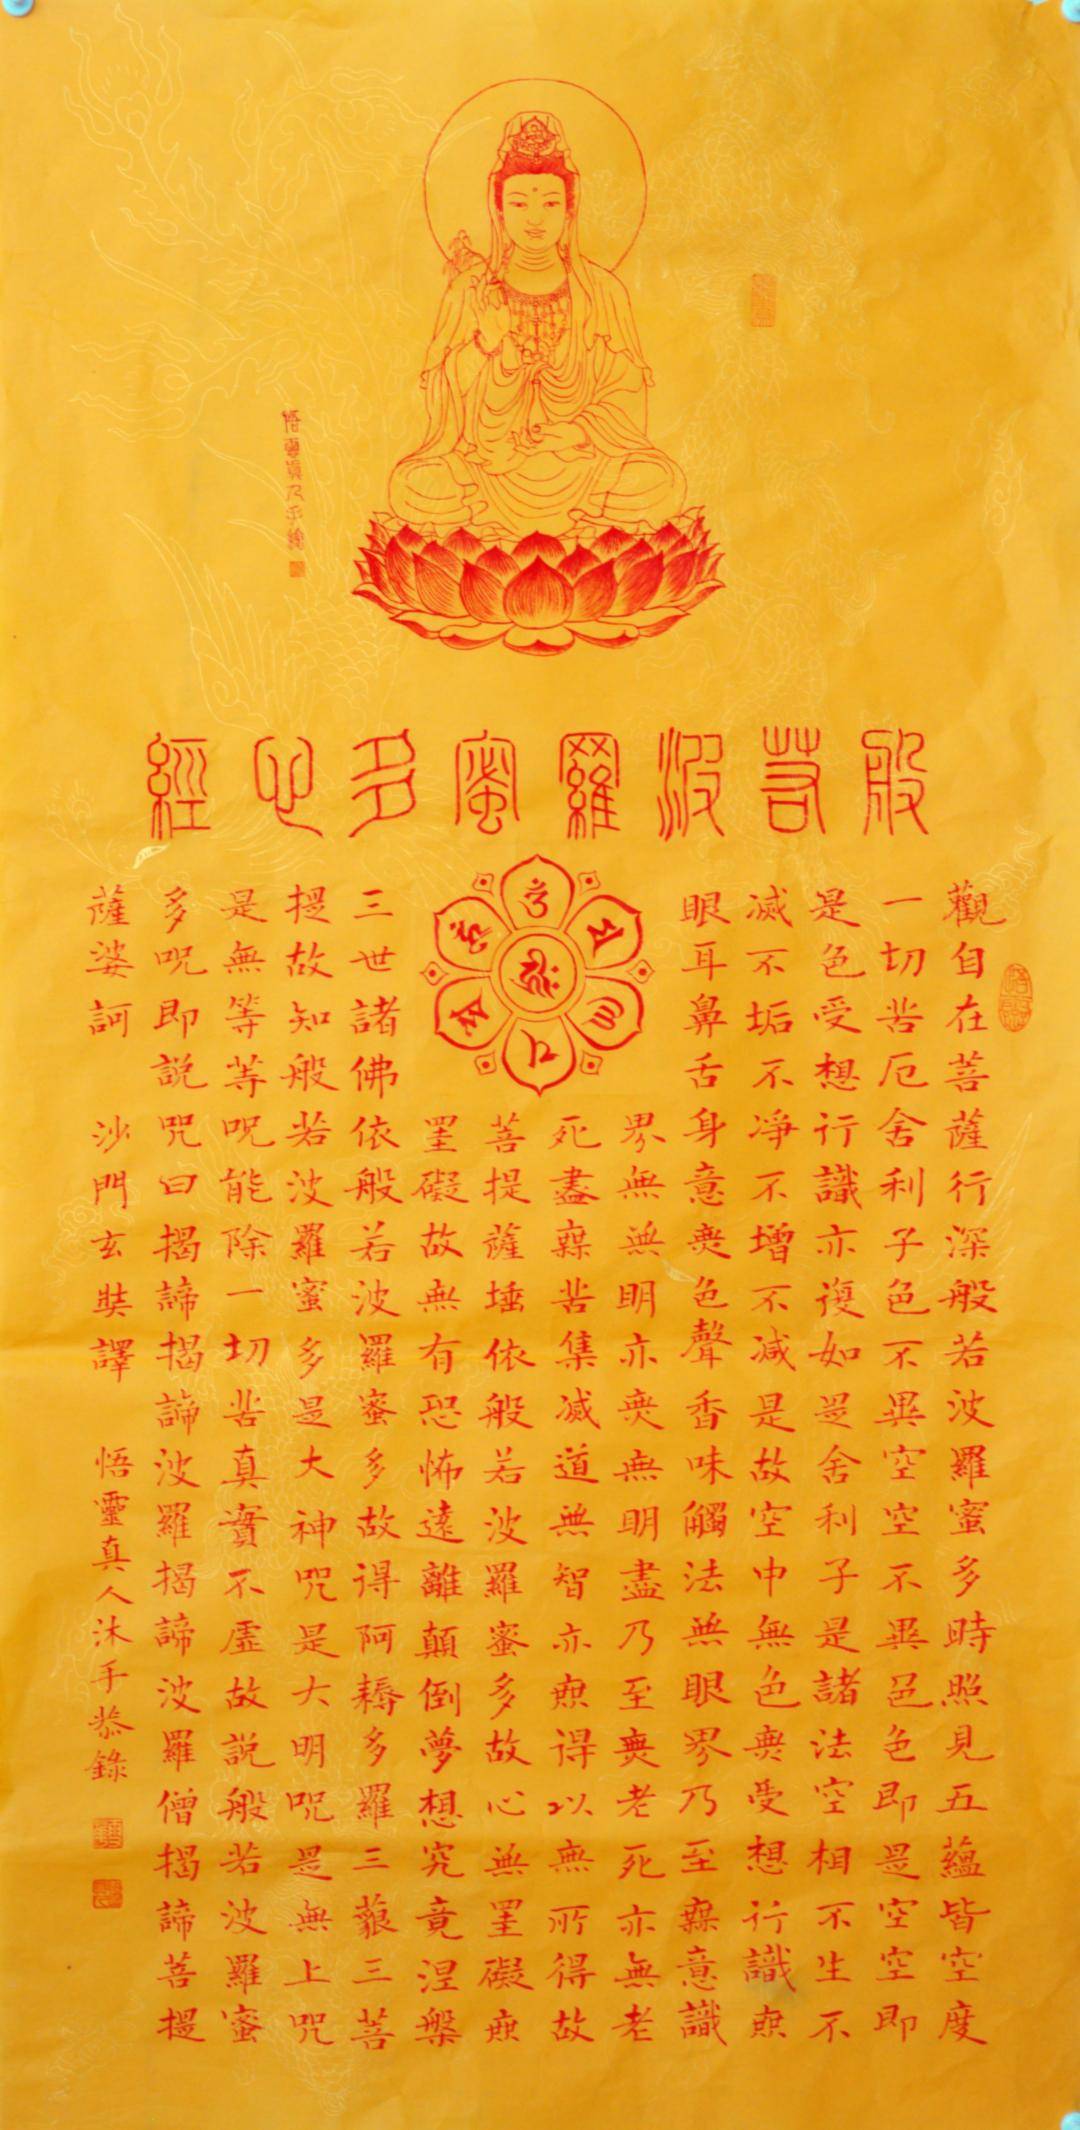 悟靈真人手繪
般若波羅蜜多心經
觀自在菩薩行深般若波羅蜜多時照見五蘊皆空度
一切苦厄舍利子色不異空空不異色色即是空空即
是色受想行識亦復如是舍利子是諸法空相不生不
滅不垢不淨不增不減是故空中無色無受想行識無
眼耳鼻舌身意無色聲香味觸法無眼界乃至無意識
界無無明亦無無明盡乃至無老死亦無老
死盡無苦集滅道無智亦無得以無所得故
菩提薩埵依般若波羅蜜多故心無罣礙無
罣礙故無有恐怖遠離顛倒夢想究竟涅槃
三世諸佛依般若波羅蜜多故得阿耨多羅三藐三菩
提故知般若波羅蜜多是大神咒是大明咒是無上咒
是無等等呪能除一切苦真實不虛故說般若波羅蜜
多呪即說咒曰揭諦揭諦波羅揭諦波羅僧揭諦菩提
薩婆訶 沙門玄奘譯 悟靈真人沐手恭錄